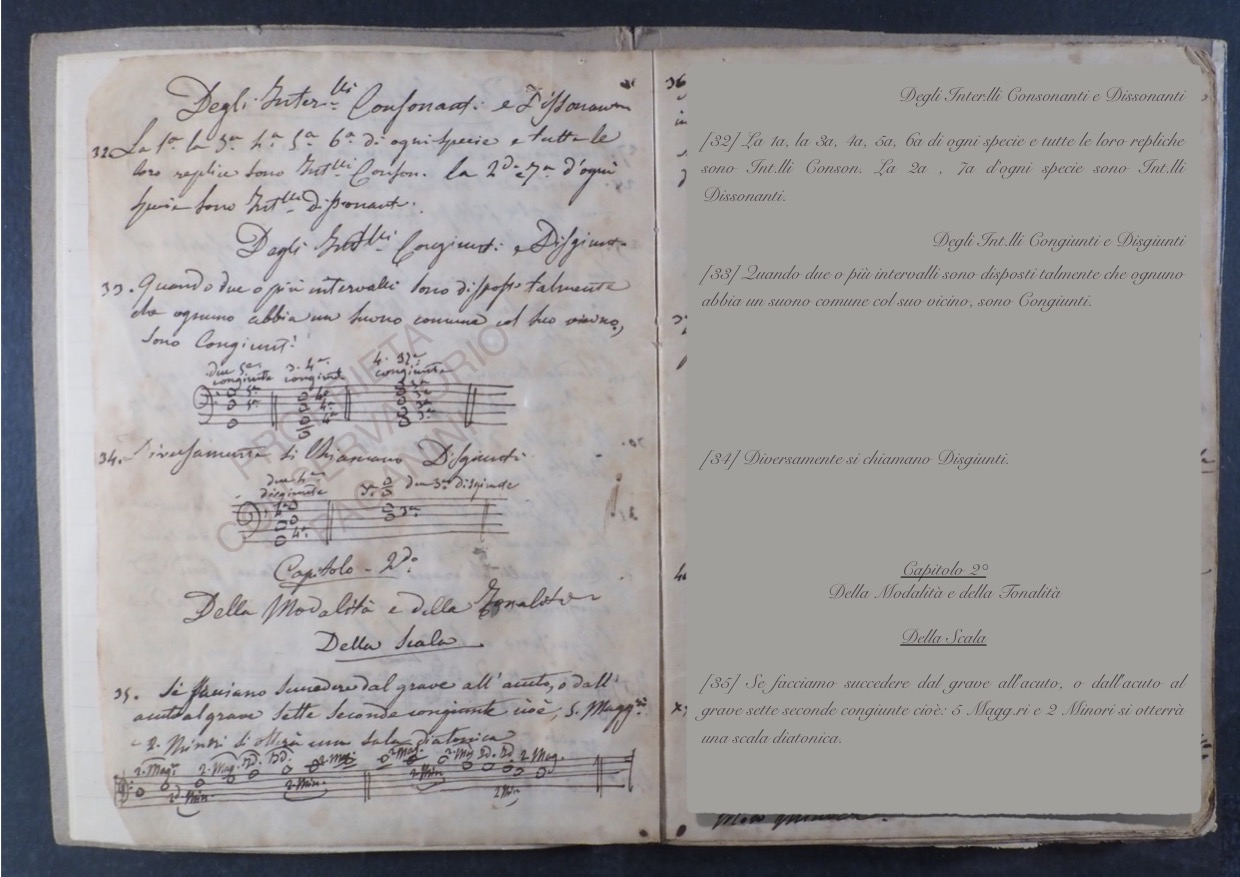 Degli Inter.lli Consonanti e Dissonanti
32. La 1a. la 3a. 4a. 5a. 6a. di ogni specie e tutte le
loro replice sono Int.lli Conson. la 2da. e 7a. d'ogni
specie sono Int.lli dissonanti.
Degli Int.lli Congiunti e Disgiunti
33. Quando due o più intervalli sono disposti talmente
che ognuno abbia un suono comune col suo vicino,
sono Congiunti
due 5e. congiunte
3. 4e. congiunte
4. 3ze. congiunte
5a. 5a. 4a. 4a. 4a. 3a. 3a. 3a. 3a.
34. Diversamente si chiamano Disgiunti.
due 4e. disgiunte
due 3e. disgiunte
4a. 4a. 3a. 3a.
Capitolo - 2do.
Della Modalità e della Tonalità
Della Scala
35. Se facciamo succedere dal grave all' acuto, o dall'
acuto al grave sette seconde congiunte cioè, 5. Magg.ri
e 2. Minori si otterà una scala diatonica
2. Mag. 2. Mag. 2. Mag. 2. Mag. 2. Mag.
2. Min. 2. Min. 2. Min. 2. Min.
PROPRIETA
CONSERVATORIO
PAGANINI
Degli Inter.lli Consonanti e Dissonanti
[32] La 1a, la 3a, 4a, 5a, 6a di ogni specie e tutte le loro repliche
sono Int.lli Conson. La 2a , 7a d'ogni specie sono Int.lli
Dissonanti.
Degli Int.lli Congiunti e Disgiunti
[33] Quando due o più intervalli sono disposti talmente che ognuno
abbia un suono comune col suo vicino, sono Congiunti.
[34] Diversamente si chiamano Disgiunti.
Capitolo 2°
Della Modalità e della Tonalità
Della Scala
[35] Se facciamo succedere dal grave all'acuto, o dall'acuto al
grave sette seconde congiunte cioè: 5 Magg.ri e 2 Minori si otterrà
una scala diatonica.